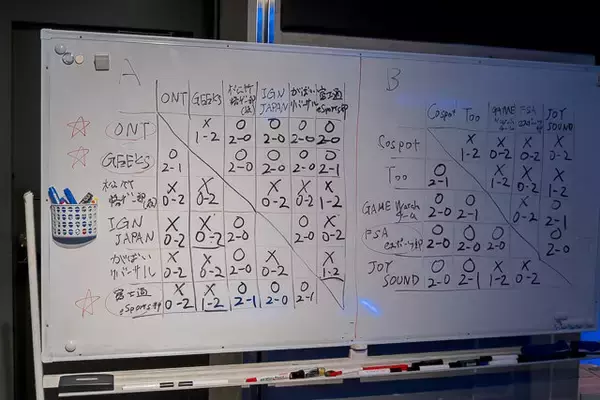 A
ONT GEEKS 松竹 IGN がばい 富士通
格ゲー部(仮) JAPAN リバーサル eSports部
X O O O O
ONT 1-2 2-0 2-0 2-0 2-0
O O O O O
GEEKS 2-1 2-0 2-0 2-0 2-1
松竹 X X X X X
格ゲー部(仮) 0-2 0-2 0-2 0-2 1-2
IGN X X O O X
JAPAN 0-2 0-2 2-0 2-0 0-2
がばい X X O X X
リバーサル 0-2 0-2 2-0 0-2 1-2
富士通 X X O O O
eSports部 0-2 1-2 2-1 2-0 2-1
B
Cospot Too GAME FSA JOY
SOUND
Cospot X X X X
1-2 0-2 0-2 0-2
Too O X X X
2-1 1-2 0-2 1-2
GAME Watch O O X O
チーム 2-0 2-1 0-2 2-1
FSA O O O O
eスポーツ部 2-0 2-0 2-0 2-0
JOY O O X X
SOUND 2-0 2-1 1-2 0-2